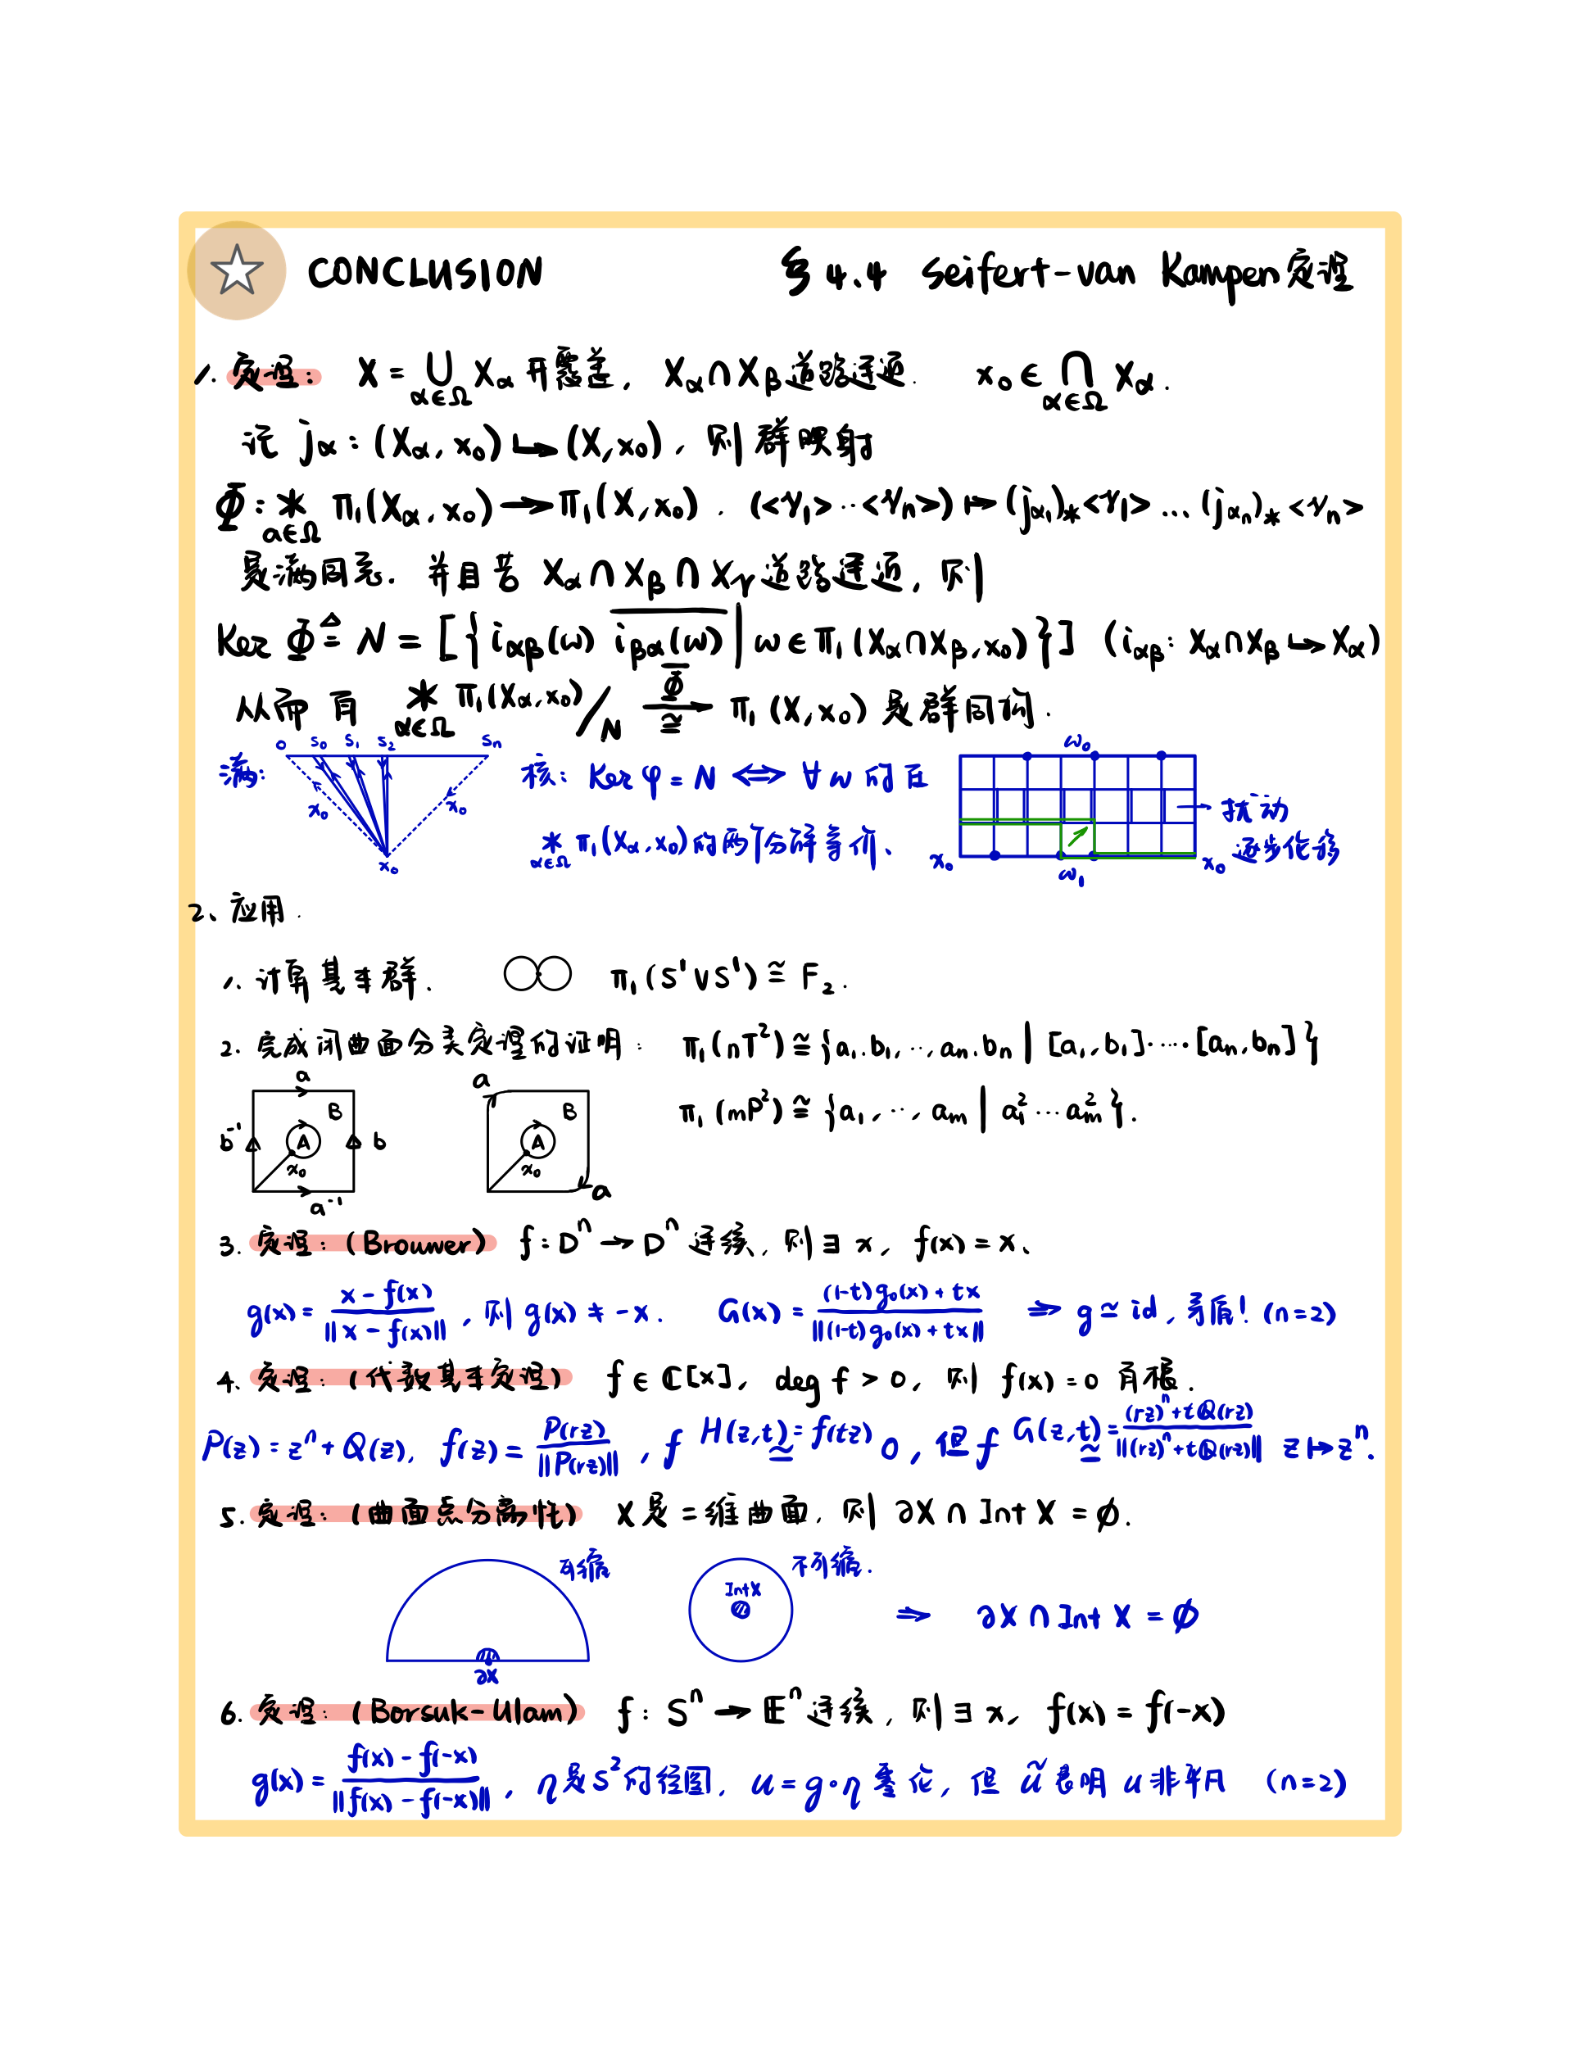 CONCLUSION § 4.4 Seifert-van Kampen定理
1. 定理: X = ⋃_{α∈Ω} X_α 开覆盖, X_α ∩ X_β 道路连通. x_0 ∈ ⋂_{α∈Ω} X_α.
记 j_α : (X_α, x_0) ↪ (X, x_0), 则群映射
Φ: *_{α∈Ω} π_1(X_α, x_0) → π_1(X, x_0). (<γ_1>…<γ_n>) ↦ (j_{α_1})_*<γ_1> … (j_{α_n})_*<γ_n>
是满同态. 并且若 X_α ∩ X_β ∩ X_γ 道路连通, 则
Ker Φ ≜ N = [{ i_{αβ}(ω) \overline{i_{βα}(ω)} | ω ∈ π_1(X_α ∩ X_β, x_0) }] (i_{αβ}: X_α ∩ X_β ↪ X_α)
从而有 *_{α∈Ω} π_1(X_α, x_0)/N \xrightarrow[≅]{\overline{Φ}} π_1(X, x_0) 是群同构.
满: 0 s_0 s_1 s_2 s_n
x_0 x_0
x_0
核: Ker φ = N ⟺ ∀ω 的在
*_{α∈Ω} π_1(X_α, x_0) 的两个分解等价、
ω_0
x_0 ω_1 x_0
→ 扰动
逐步伦移
2、应用.
1. 计算基本群. π_1(S^1 ∨ S^1) ≅ F_2.
2. 完成闭曲面分类定理的证明: π_1(nT^2) ≅ {a_1.b_1,…,a_n.b_n | [a_1,b_1]…[a_n,b_n]}
π_1(mP^2) ≅ {a_1,…,a_m | a_1^2…a_m^2}.
a B b^{-1} A b x_0 a^{-1}
a B A x_0 a
3. 定理: (Brouwer) f: D^n → D^n 连续, 则 ∃ x, f(x) = x、
g(x) = \frac{x - f(x)}{||x - f(x)||}, 则 g(x) ≠ -x. G(x) = \frac{(1-t)g_0(x) + tx}{||(1-t)g_0(x) + tx||} ⇒ g ≃ id, 矛盾! (n=2)
4、定理: (代数基本定理) f ∈ ℂ[x], deg f > 0, 则 f(x) = 0 有根.
P(z) = z^n + Q(z), f(z) = \frac{P(rz)}{||P(rz)||}, f \overset{H(z,t)=f(tz)}{≃} 0, 但 f \overset{G(z,t)=\frac{(rz)^n+tQ(rz)}{||(rz)^n+tQ(rz)||}}{≃} z ↦ z^n.
5. 定理: (曲面点分离性) X是二维曲面, 则 ∂X ∩ Int X = ∅.
可缩 ∂X
Int X 不可缩.
⇒ ∂X ∩ Int X = ∅
6. 定理: (Borsuk-Ulam) f: S^n → E^n 连续, 则 ∃ x, f(x) = f(-x)
g(x) = \frac{f(x) - f(-x)}{||f(x) - f(-x)||}, η是S^2的径圆, u = g∘η 零伦, 但 ũ 表明 u 非平凡 (n=2)